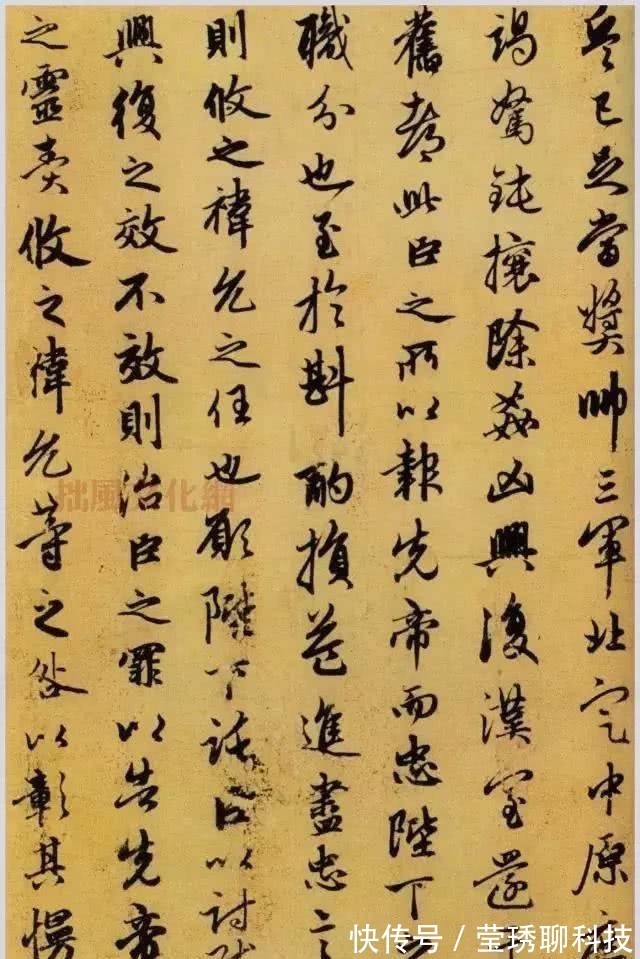 兵已足當獎帥三軍北定中原庶
竭駑鈍攘除姦凶興復漢室還
舊都此臣之所以報先帝而忠陛下之
職分也至於斟酌損益進盡忠言
則攸之禕允之任也願陛下託臣以討賊
興復之效不效則治臣之罪以告先帝
之靈責攸之禕允等之咎以彰其慢
拙風文化網
快传号 / 莹琇聊科技